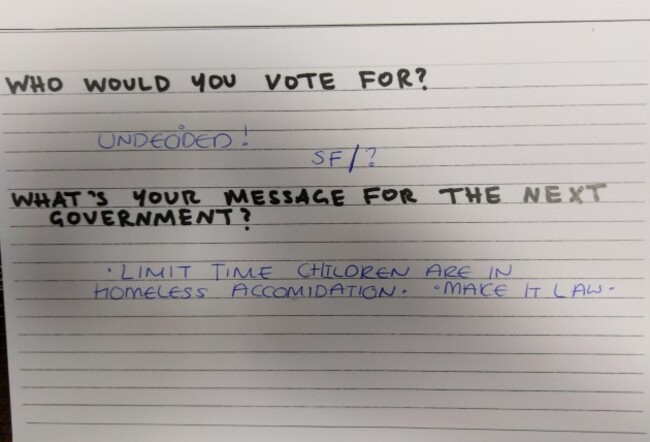 WHO WOULD YOU VOTE FOR?
UNDECIDED!
SF/?
WHAT'S YOUR MESSAGE FOR THE NEXT
GOVERNMENT?
· LIMIT TIME CHILDREN ARE IN
HOMELESS ACCOMIDATION. · MAKE IT LAW.